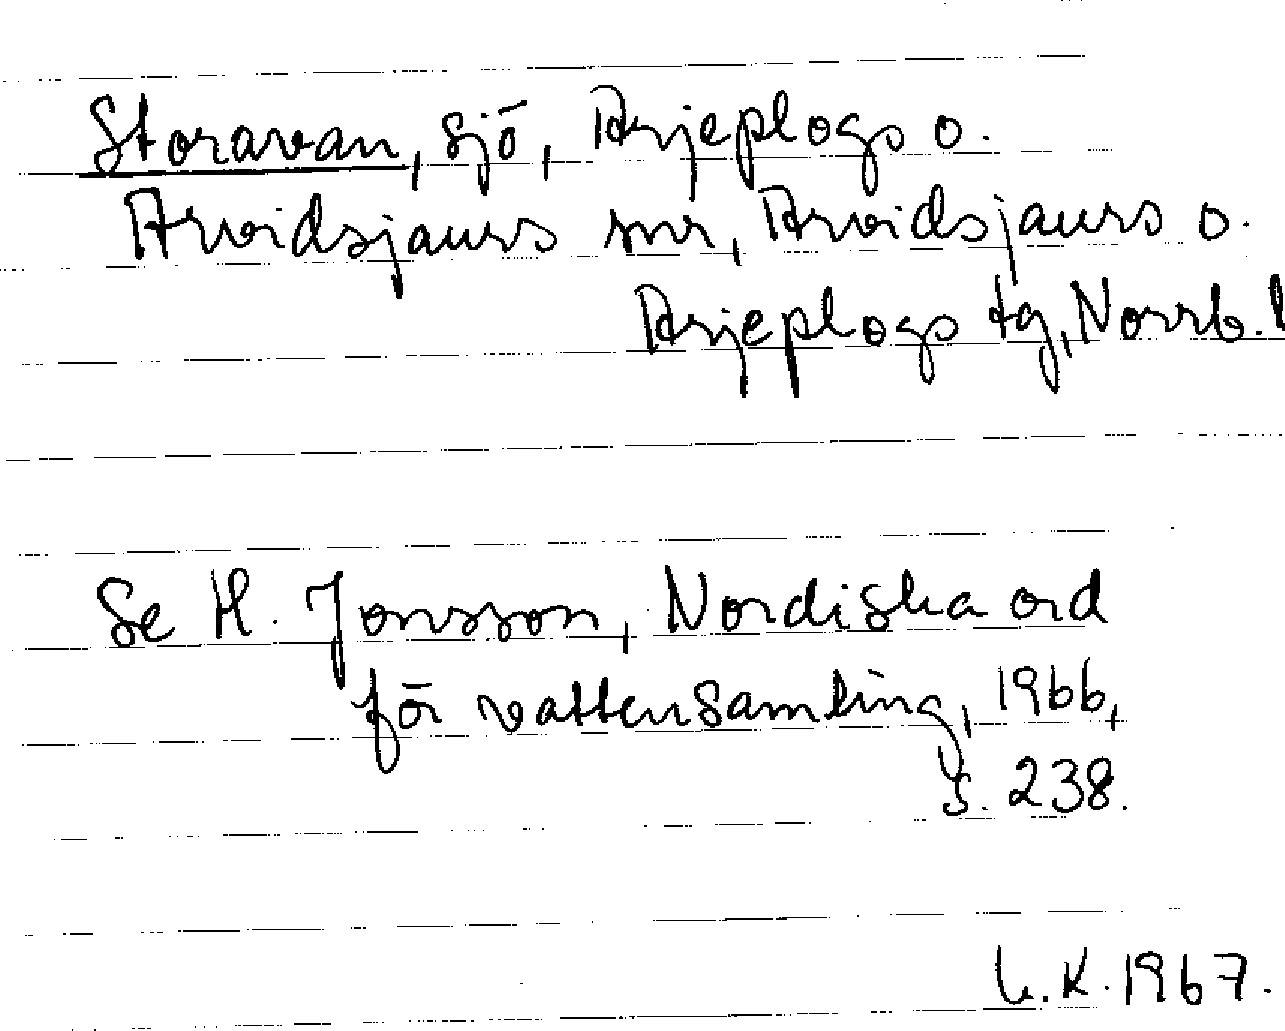 Storavan, sjö, Arjeplogs o.
Arvidsjaurs snr, Arvidsjaurs o.
Arjeplogs tg, Norrb. l
Se H. Jonsson, Nordiska ord
för vattensamling, 1966,
s. 238.
K. 1967.